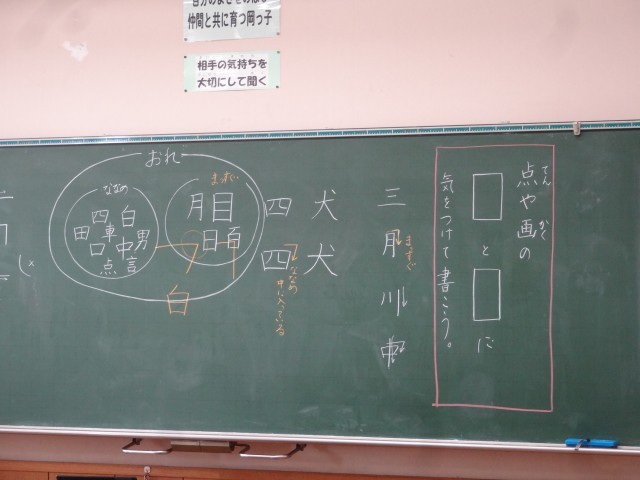 仲間と共に育つ岡っ子
相手の気持ちを
大切にして聞く
点や画の
てん
かく
□と□に
気をつけて書こう。
三
月
まっすぐ
川
犬
犬
四
四
ななめ
おれ
まっすぐ
目
月
日
ななめ
白
四
車
田
男
中
口
言
点
白